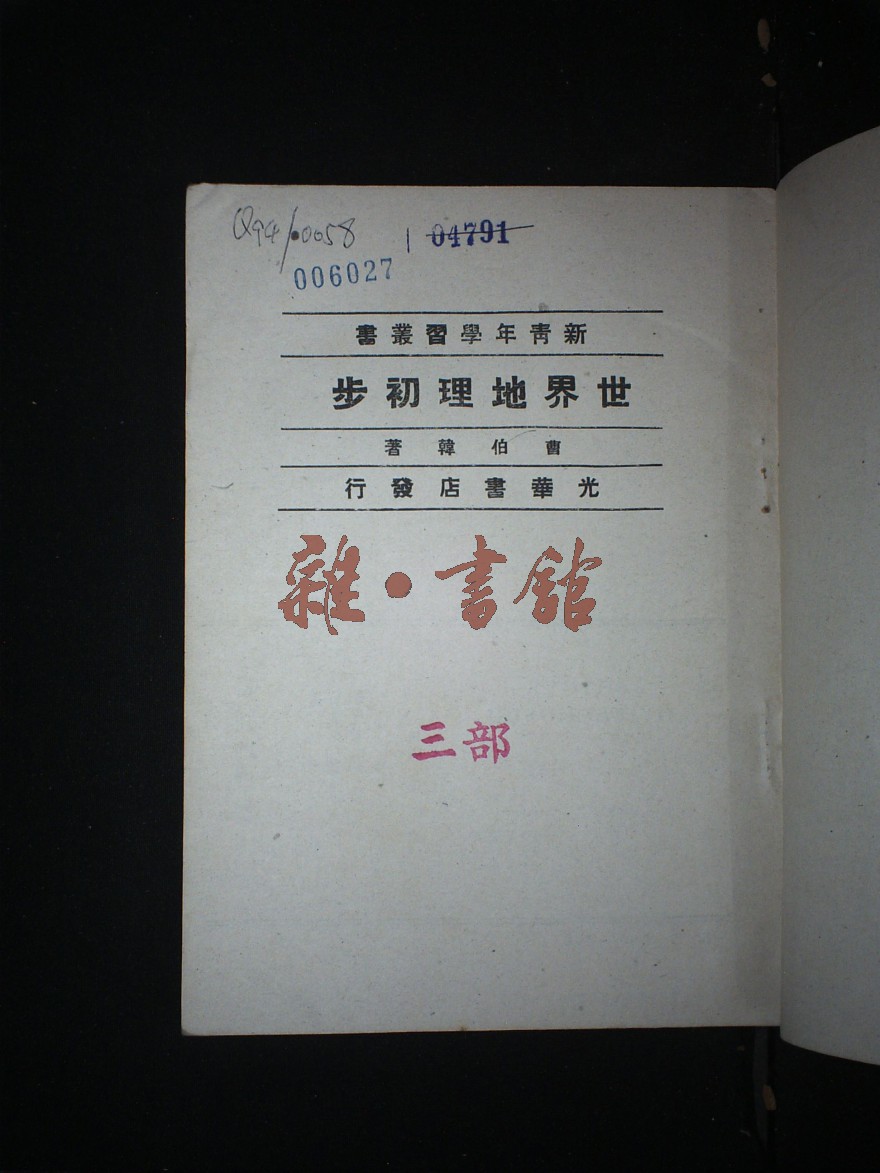 Q94/.0058 | 04791
006027
新青年學習叢書
世界地理初步
曹伯韓著
光華書店發行
雜·書館
三部